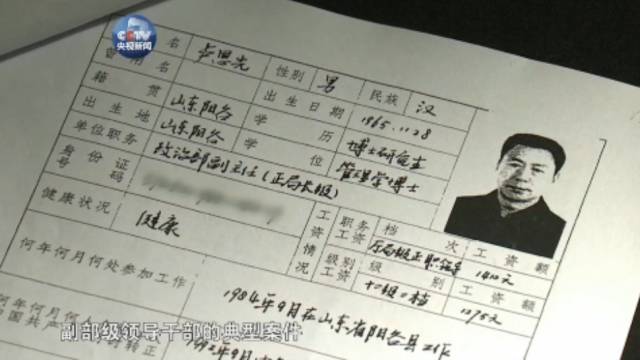 CCTV
央视新闻
名 卢恩光 性别 男 民族 汉
曾用名 出生日期 1965.11.28
籍贯 山东阳谷 学历 博士研究生
出生地 山东阳谷 学位 管理学博士
单位职务 政治部副主任(正局长级)
身份证号码
健康状况 健康
工资情况 职务工资 档次 工资额
1410元
级别工资 级别 工资额
1275元
何年何月何处参加工作 1984年9月在山东省阳谷县工作
何年何月
中国共产 转正 1992年9月
副部级领导干部的典型案件